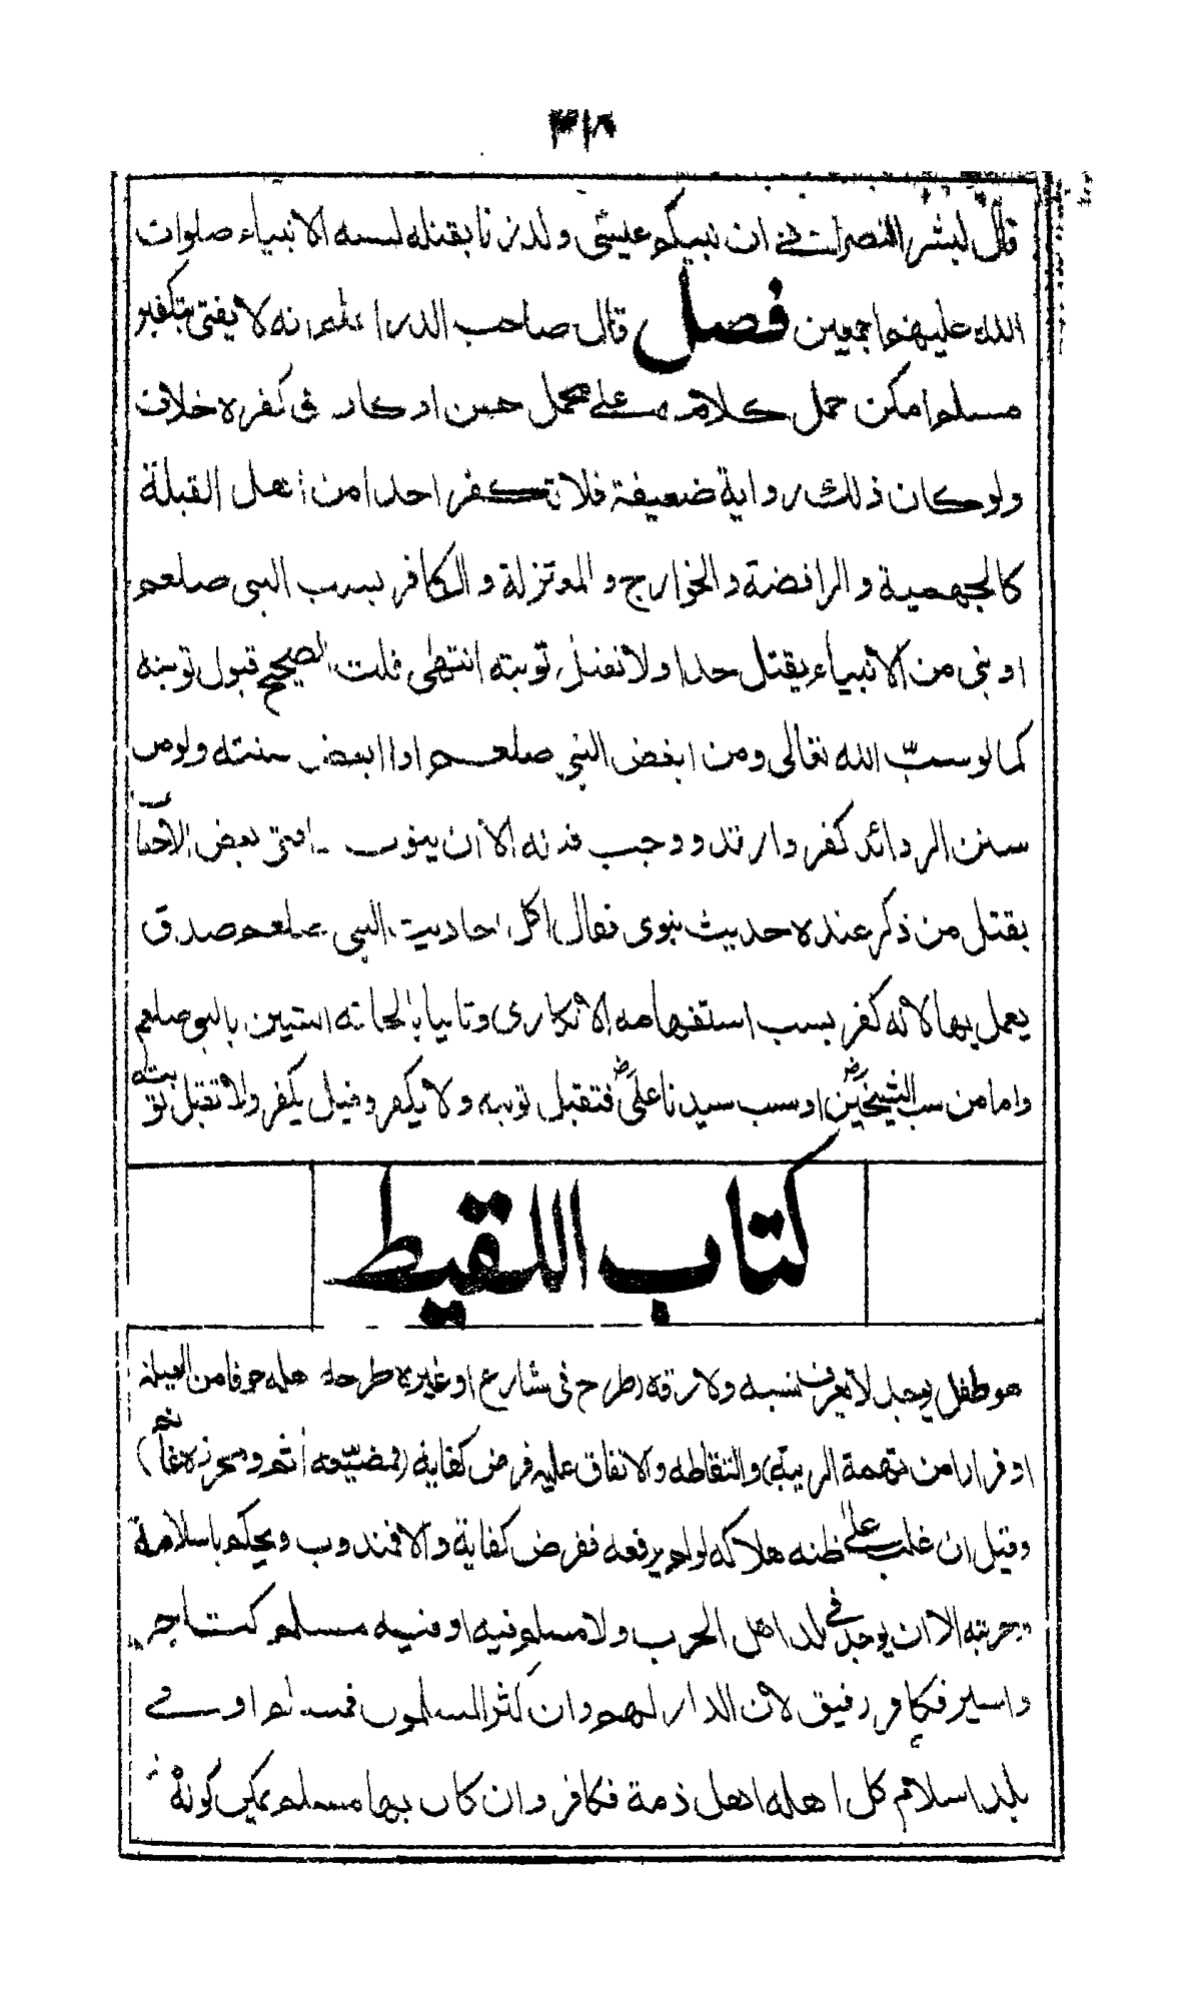 ٣١٨
قال لبشر النصراني ان نبيكم عيسى ولد زنا بقتله لسبه الانبياء صلوات
الله عليهم اجمعين فصل قال صاحب الدر اعلم انه لا يفتى بتكفير
مسلم امكن حمل كلامه على محمل حسن او كان فى كفره خلاف
ولو كان ذلك رواية ضعيفة فلا تكفر احدا من اهل القبلة
كالجهمية والرافضة والخوارج والمعتزلة والكافر بسبب النبى صلعم
او نبى من الانبياء يقتل حدا ولا تقبل توبته انتهى قلت الصحيح قبول توبته
كما لو سبّ الله تعالى ومن ابغض النبى صلعم او ابغض سنته ولو من
سنن الزوائد كفر وارتد ووجب قتله الا ان يتوب افتى بعض الاحنا
بقتل من ذكر عنده حديث نبوى فقال اكل احاديث النبى صلعم صدق
يعمل بها لانه كفر بسبب استفهامه الانكارى وثانيا بالحاقه الشين بالنبى صلعم
واما من سب الشيخين او سب سيدنا على فتقبل توبته ولا يكفر وقيل يكفر ولا تقبل توبته
كتاب اللقيط
هو طفل يوجد لا يعرف نسبه ولا رقه (طرح فى شارع او غيره طرحه اهله خوفا من العيلة
او فرارا من تهمة الريبة) والتقاطه والانفاق عليه فرض كفاية (فمضيّعه اثم ومحرزه غانم)
وقيل ان غلب على ظنه هلاكه لو لم يرفعه ففرض كفاية والا فمندوب ويحكم باسلامه
وحريته الا ان يوجد فى بلد اهل الحرب ولا مسلم فيه او فيه مسلم كتاجر
واسير فكافر رقيق لان الدار لهم وان كثر المسلمون فمسلم او فى
بلد اسلام كل اهله اهل ذمة فكافر وان كان بها مسلم يمكن كونه